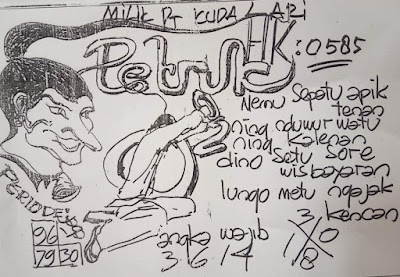 MILIK PT KUDA LARI
HK:0585
Nemu Sepatu apik
tenan
ning nduwur watu
ning kalenan
dino Setu Sore
wis bayaran
lungo metu ngajak
kencan
PERIODE:
96 78
79 30
angka wajib
3 6 / 4
3 / 0
1 / 8